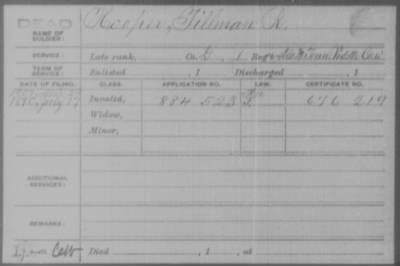 DEAD
NAME OF SOLDIER: Hooper, Tillman R.
SERVICE: Late rank, Co. D, 1 Reg't Tenn. Cav.
TERM OF SERVICE: Enlisted , 1 Discharged , 1
DATE OF FILING. CLASS. APPLICATION NO. LAW. CERTIFICATE NO.
1890, July 17 Invalid, 884 523 676 217
Widow,
Minor,
ADDITIONAL SERVICES:
REMARKS:
Died , 1 , at